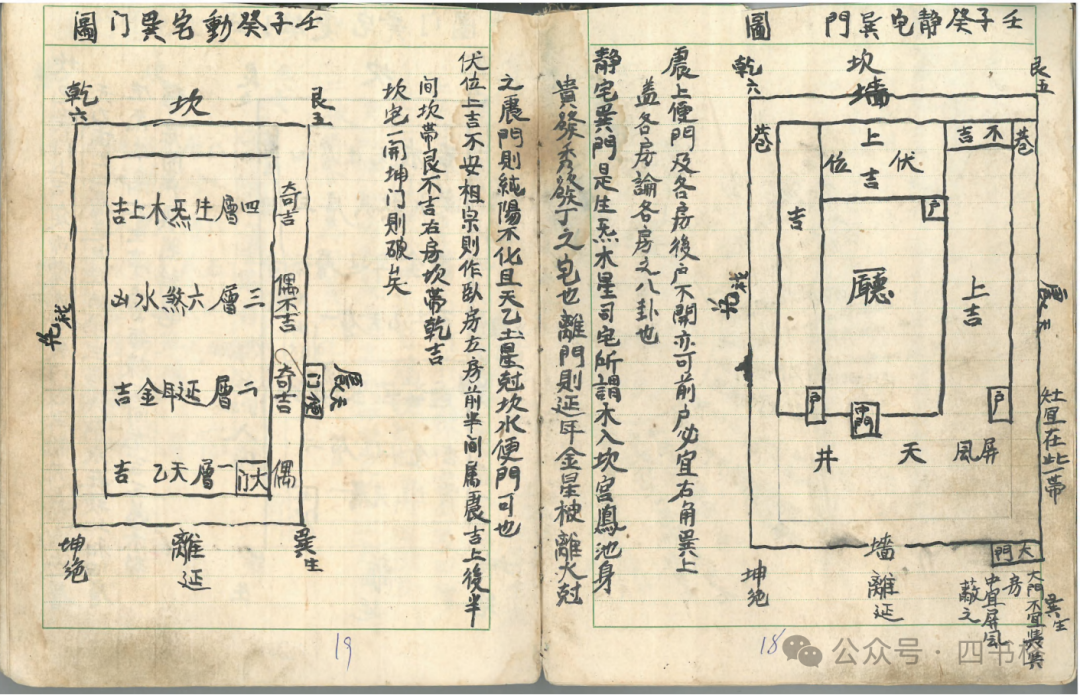 壬子癸静宅巽門圖
艮五
坎
乾六
墻
巷
不吉
巷
上吉
伏位
吉
戶
廳
上吉
震天
戶
中門
戶
屏風
天井
灶宜在此一帶
墻
大門
離延
坤絶
巽生
大門不宜
房
中宜屏風
蔽之
震上便門及各房後戶不開亦可前戶必宜右角巽上
蓋各房論各房之八卦也
静宅巽門是生炁木星司宅所謂木入坎宮鳳池身
貴發秀發丁之宅也離門則延年金星被離火尅
18
之震門則純陽不化且天乙土星尅坎水便門可也
伏位上吉不安祖宗則作臥房左房前半间屬震吉上後半
间坎帶艮不吉右房坎帶乾吉
坎宅一開坤门則破矣
壬子癸動宅巽门圖
艮五
坎
乾六
四層生炁木上吉
奇吉
三層六煞水凶
偶不吉
二層延年金吉
奇吉
便门
震天
一層天乙吉
大门
偶
巽生
離延
坤絶
19
公众号·四书